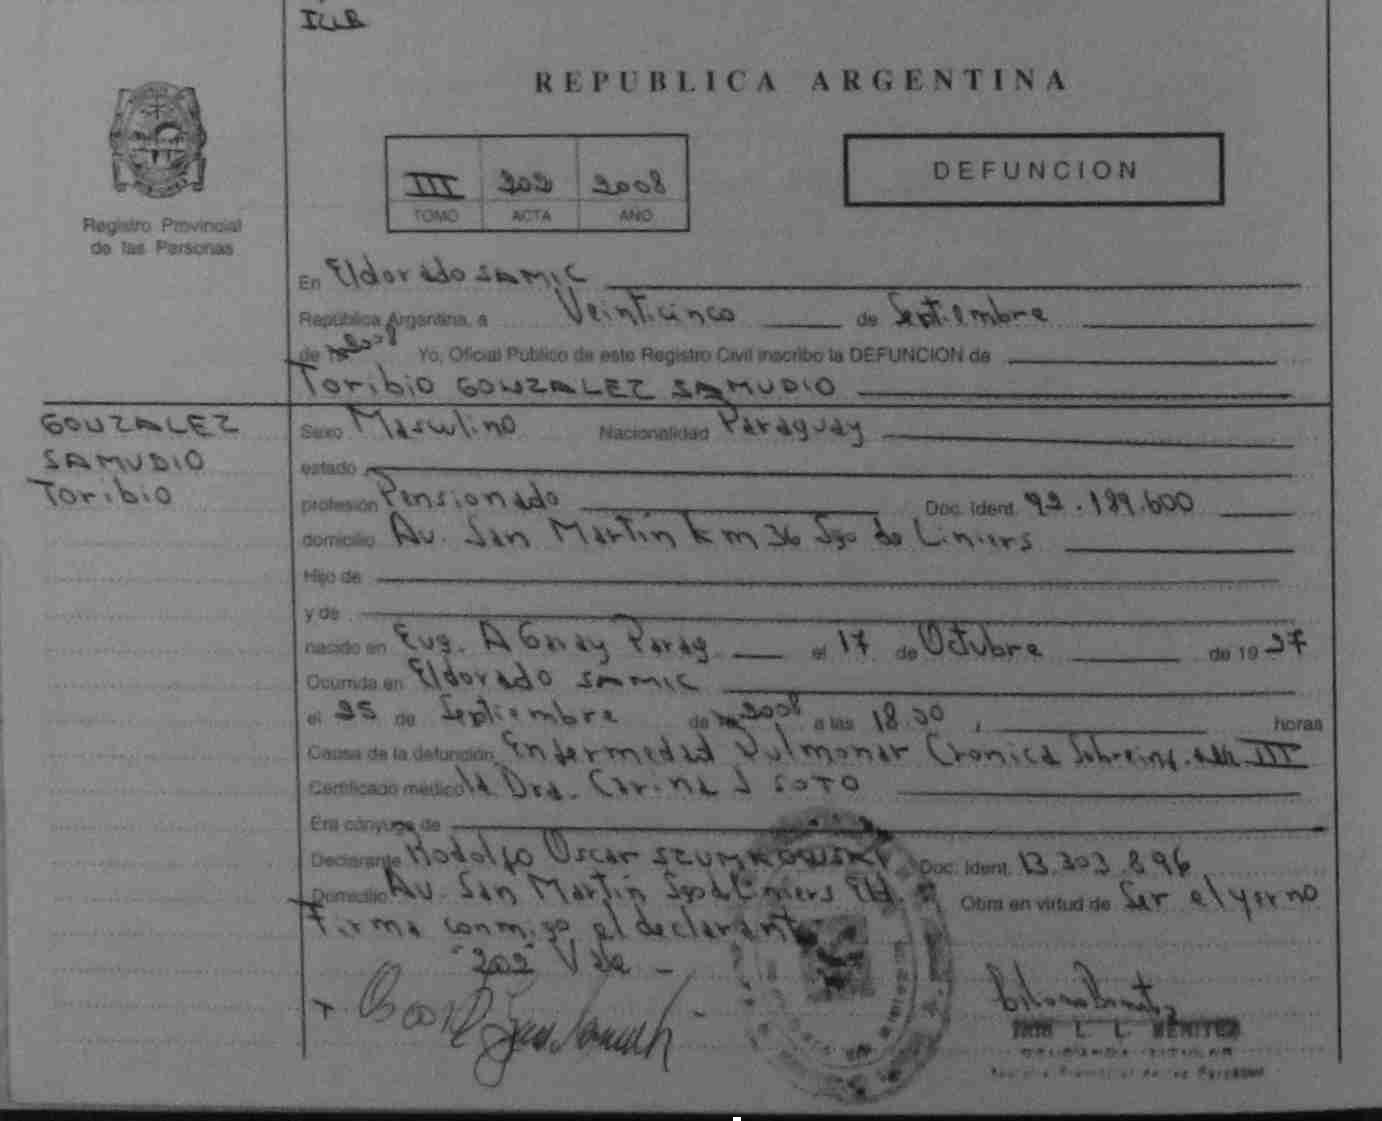 REPUBLICA ARGENTINA
DEFUNCION
III 202 2008
TOMO ACTA AÑO
Registro Provincial
de las Personas
En Eldorado SAMIC
República Argentina, a Veinticinco de Septiembre
de 2008 Yo, Oficial Público de este Registro Civil inscribo la DEFUNCION de
Toribio GONZALEZ SAMUDIO
GONZALEZ
SAMUDIO
Toribio
Sexo Masculino Nacionalidad Paraguay
estado
profesión Pensionado Doc. Ident. 92.189.600
domicilio Av. San Martín km 36 Sgo de Liniers
Hijo de
y de
nacido en Eug. A Garay Parag el 17 de Octubre de 19
Ocurrida en Eldorado SAMIC
el 25 de Septiembre de 2008 a las 18.30 horas
Causa de la defunción Enfermedad Pulmonar Cronica III
Certificado médico la Dra. Carina J SOTO
Era cónyuge de
Declarante Rodolfo Oscar SZUMKOWSKI Doc. Ident. 13.303.896
Domicilio Av. San Martín Sgo d Liniers Eld. Obra en virtud de Ser el yerno
Firma conmigo el declarante
"202" Vale
L. L. BENITEZ
Registro Provincial de las Personas